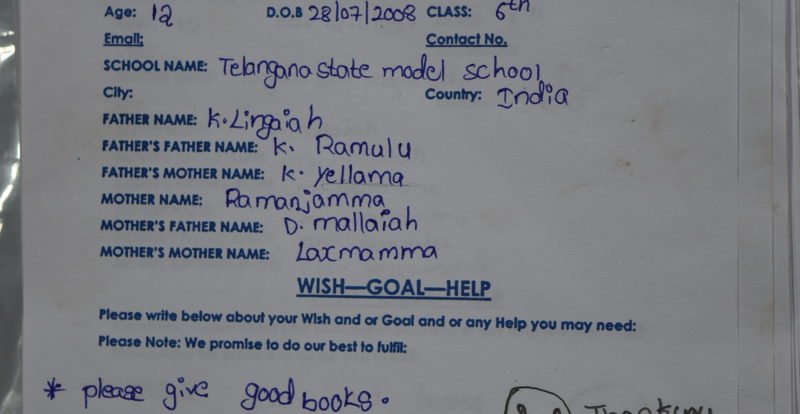 Age: 12 D.O.B 28/07/2008 CLASS: 6th
Email: Contact No.
SCHOOL NAME: Telangana state model school
City: Country: India
FATHER NAME: K. Lingaiah
FATHER'S FATHER NAME: K. Ramulu
FATHER'S MOTHER NAME: K. yellama
MOTHER NAME: Ramanjamma
MOTHER'S FATHER NAME: D. mallaiah
MOTHER'S MOTHER NAME: Laxmamma
WISH—GOAL—HELP
Please write below about your Wish and or Goal and or any Help you may need:
Please Note: We promise to do our best to fulfil:
* please give good books.